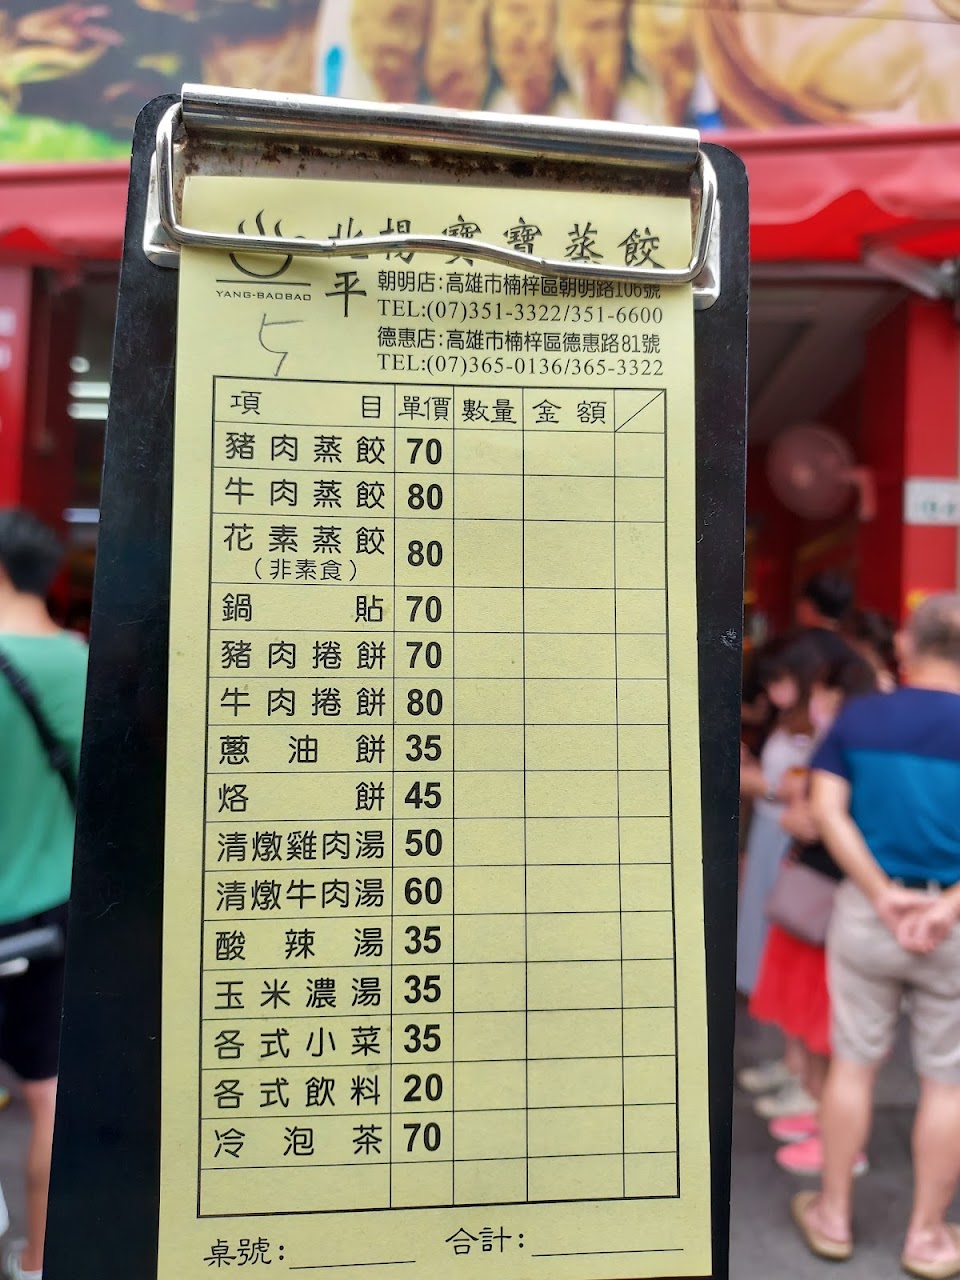 北 楊寶寶蒸餃
平
YANG-BAOBAO
朝明店:高雄市楠梓區朝明路106號
TEL:(07)351-3322/351-6600
德惠店:高雄市楠梓區德惠路81號
TEL:(07)365-0136/365-3322
5
項目 單價 數量 金額
豬肉蒸餃 70
牛肉蒸餃 80
花素蒸餃 80
(非素食)
鍋貼 70
豬肉捲餅 70
牛肉捲餅 80
蔥油餅 35
烙餅 45
清燉雞肉湯 50
清燉牛肉湯 60
酸辣湯 35
玉米濃湯 35
各式小菜 35
各式飲料 20
冷泡茶 70
桌號: 合計: